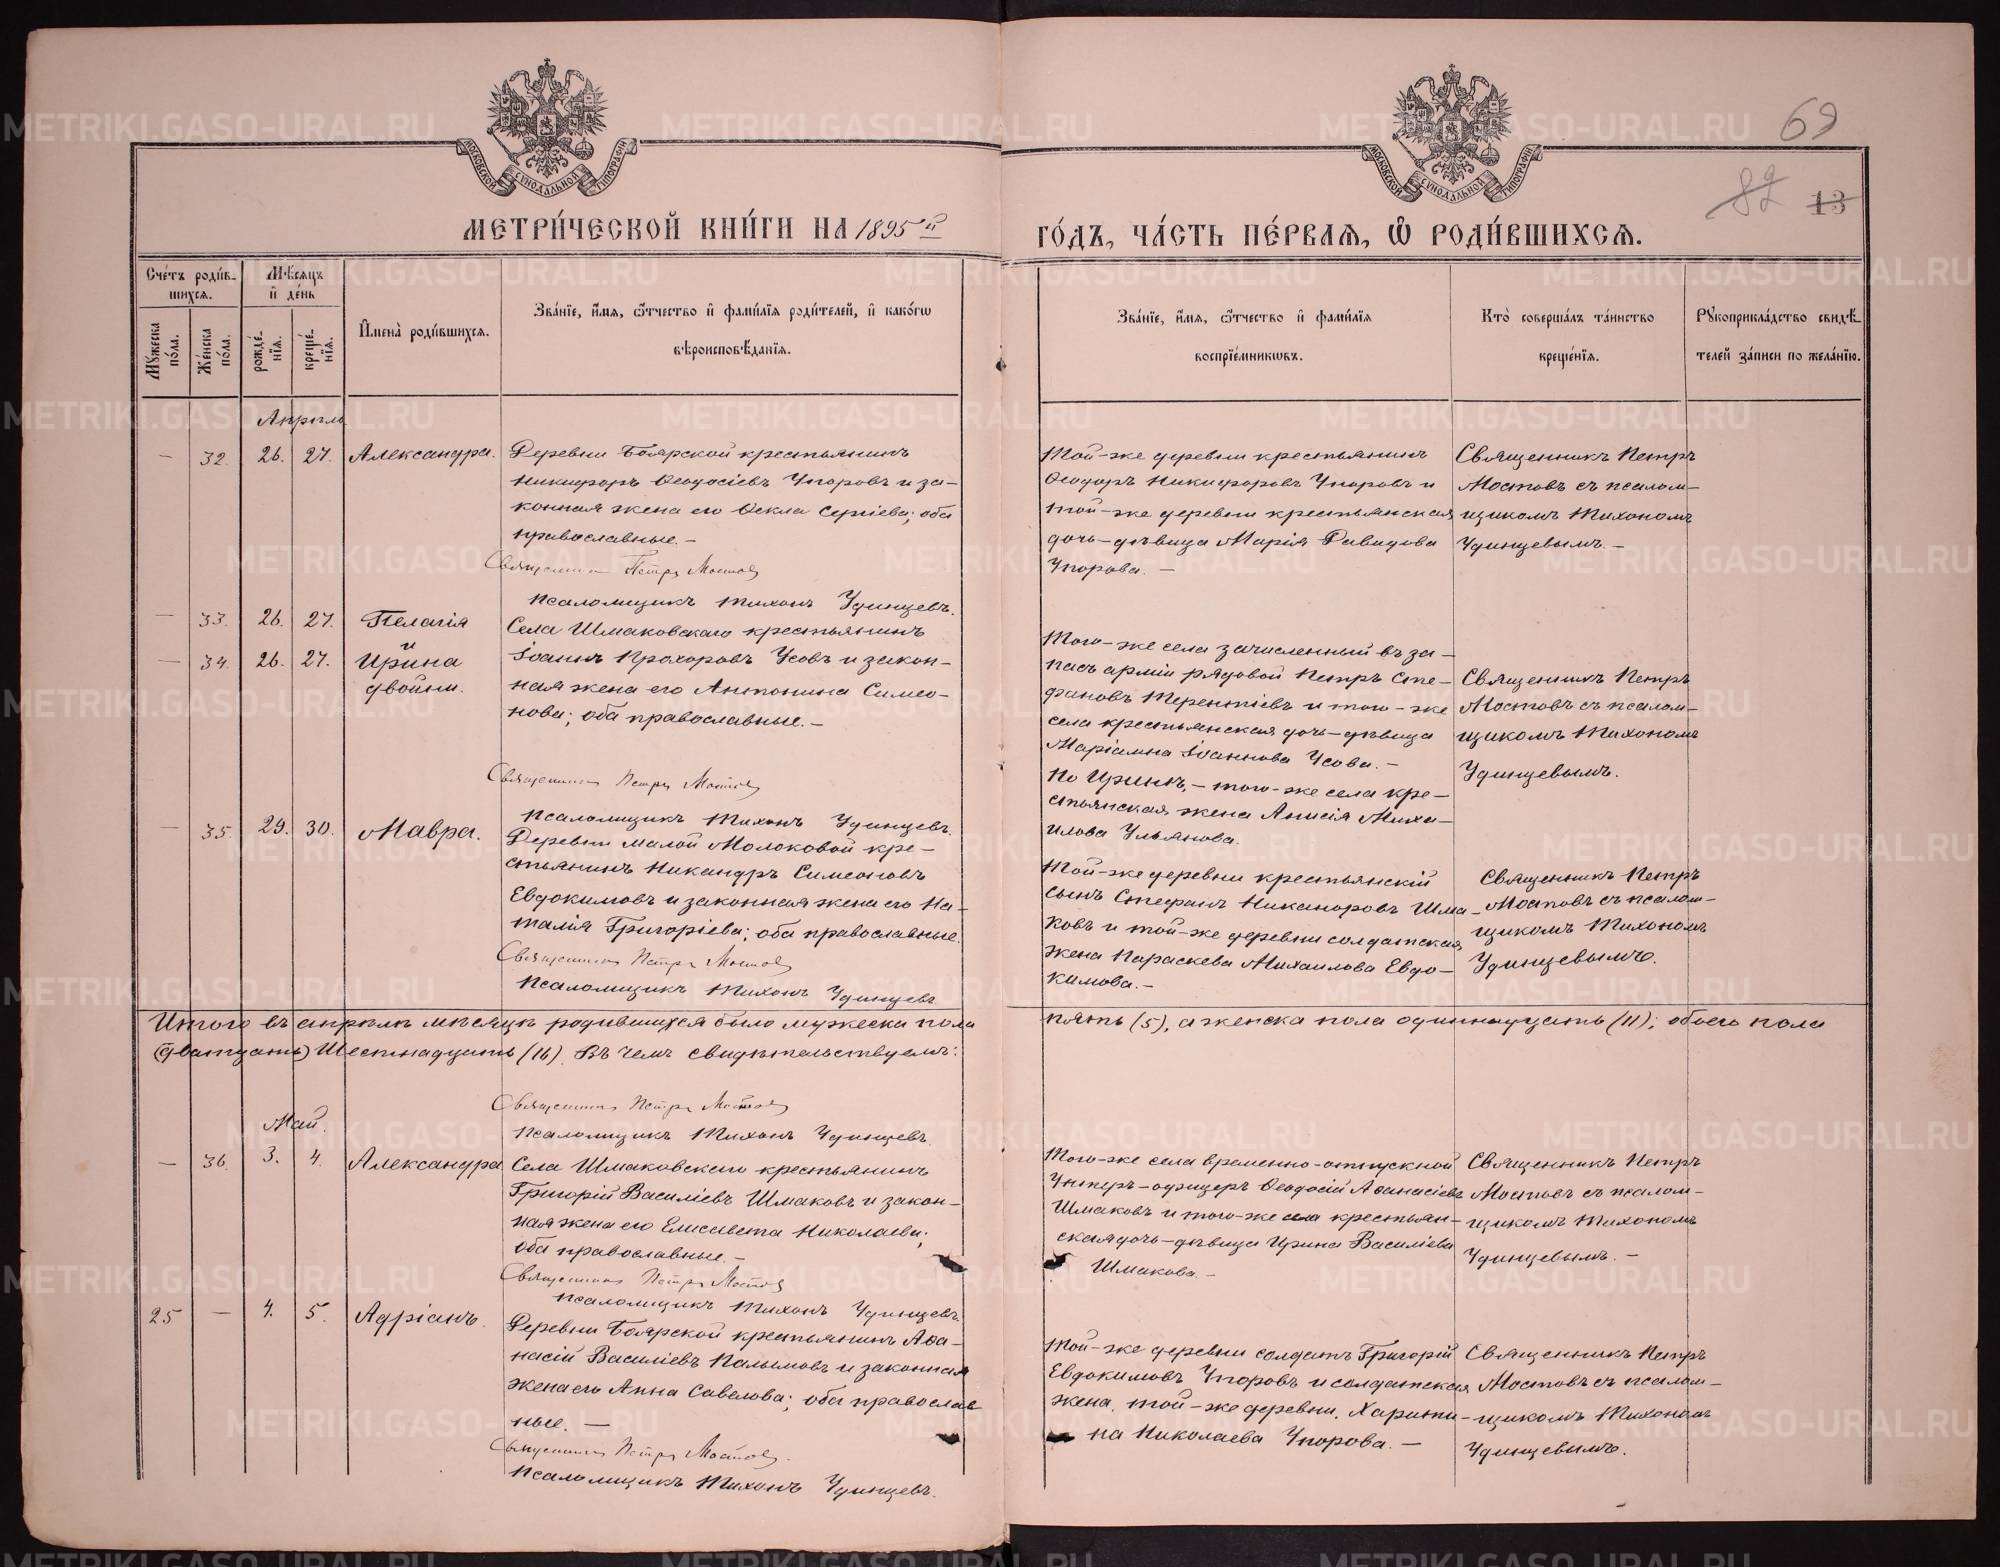 69
82 13
МОСКОВСКОЙ СУНОДАЛЬНОЙ ТИПОГРАФІИ
МОСКОВСКОЙ СУНОДАЛЬНОЙ ТИПОГРАФІИ
МЕТРИ́ЧЕСКОЙ КНИ́ГИ НА 1895й
ГО́ДЪ, ЧА́СТЬ ПЕ́РВАѦ, Ѡ҆ РОДИ́ВШИХСѦ.
Сче́тъ роди́в-
шихсѧ.
Мѣ́сѧцъ
и҆ де́нь
Мꙋ́жеска по́ла.
Же́нска по́ла.
рожде́-
нїѧ.
креще́-
нїѧ.
И҆мена̀ роди́вшихсѧ.
Зва́нїе, и҆́мѧ, ѻ҆́тчество и҆ фами́лїѧ роди́телей, и҆ како́гѡ
вѣроисповѣ́данїѧ.
Зва́нїе, и҆́мѧ, ѻ҆́тчество и҆ фами́лїѧ
воспрїе́мникѡвъ.
Кто̀ соверша́лъ та́инство
креще́нїѧ.
Рꙋкоприкла́дство свидѣ́-
телей за́писи по жела́нїю.
Апрѣль
— 32. 26. 27. Александра.
Деревни Боярской крестьянинъ
Никифоръ Ѳеодосіевъ Упоровъ и за-
конная жена его Ѳекла Сергіева; оба
православные. —
Священникъ Петръ Мостовъ
Псаломщикъ Тихонъ Удинцевъ.
Той-же деревни крестьянинъ
Ѳеодоръ Никифоровъ Упоровъ и
той-же деревни крестьянская
дочь-дѣвица Марія Давидова
Упорова. —
Священникъ Петръ
Мостовъ съ псалом-
щикомъ Тихономъ
Удинцевымъ. —
— 33. 26. 27. Пелагія
и
— 34. 26. 27. Ирина
двойни.
Села Шмаковскаго крестьянинъ
Іоаннъ Прохоровъ Усовъ и закон-
ная жена его Антонина Симео-
нова; оба православные. —
Священникъ Петръ Мостовъ
Псаломщикъ Тихонъ Удинцевъ.
Того-же села зачисленный въ за-
пасъ арміи рядовой Петръ Сте-
фановъ Терентіевъ и того-же
села крестьянская дочь-дѣвица
Маріамна Іоаннова Усова. —
По Иринѣ, — того-же села кре-
стьянская жена Анисія Миха-
илова Ульянова.
Священникъ Петръ
Мостовъ съ псалом-
щикомъ Тихономъ
Удинцевымъ.
— 35. 29. 30. Мавра.
Деревни Малой Молоковой кре-
стьянинъ Никандръ Симеоновъ
Евдокимовъ и законная жена его На-
талія Григоріева; оба православные.
Священникъ Петръ Мостовъ
Псаломщикъ Тихонъ Удинцевъ
Той-же деревни крестьянскій
сынъ Стефанъ Никаноровъ Шма-
ковъ и той-же деревни солдатская
жена Параскева Михаилова Евдо-
кимова. —
Священникъ Петръ
Мостовъ съ псалом-
щикомъ Тихономъ
Удинцевымъ.
Итого въ апрѣлѣ мѣсяцѣ родившихся было мужеска пола
пять (5), а женска пола одиннадцать (11); обоего пола
(двадцать) Шестнадцать (16). Въ чемъ свидѣтельствуемъ:
Священникъ Петръ Мостовъ
Псаломщикъ Тихонъ Удинцевъ.
Май.
— 36. 3. 4. Александра
Села Шмаковскаго крестьянинъ
Григорій Василіевъ Шмаковъ и закон-
ная жена его Елисавета Николаева;
оба православные. —
Священникъ Петръ Мостовъ
Псаломщикъ Тихонъ Удинцевъ.
Того-же села временно-отпускной
Унтеръ-офицеръ Ѳеодосій Аѳанасіевъ
Шмаковъ и того-же села крестьян-
ская дочь-дѣвица Ирина Василіева
Шмакова. —
Священникъ Петръ
Мостовъ съ псалом-
щикомъ Тихономъ
Удинцевымъ. —
25 — 4. 5. Адріанъ.
Деревни Боярской крестьянинъ Аѳа-
насій Василіевъ Налимовъ и законная
жена его Анна Савелова; оба православ
ные. —
Священникъ Петръ Мостовъ.
Псаломщикъ Тихонъ Удинцевъ.
Той-же деревни солдатъ Григорій
Евдокимовъ Упоровъ и солдатская
жена, той-же деревни, Харити-
на Николаева Упорова. —
Священникъ Петръ
Мостовъ съ псалом-
щикомъ Тихономъ
Удинцевымъ.